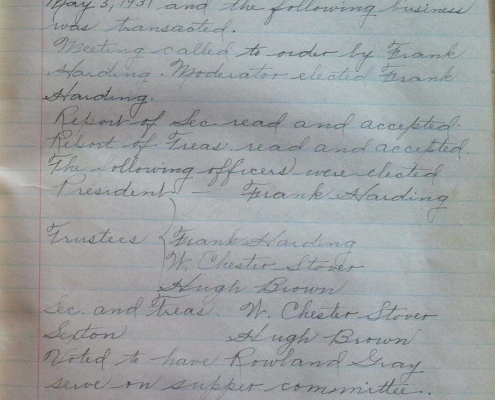 May 3, 1931 and the following business
was transacted.
Meeting called to order by Frank
Harding. Moderator elected Frank
Harding.
Report of Sec read and accepted.
Report of Treas. read and accepted.
The following officers were elected
President - Frank Harding
Trustees { Frank Harding
W. Chester Stover
Hugh Brown
Sec. and Treas. W. Chester Stover
Sexton Hugh Brown
Voted to have Rowland Gray
serve on supper committee.